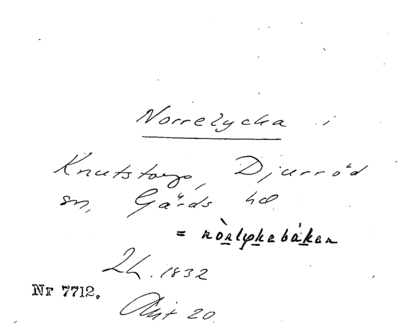 Norrelycka i
Knutstorp, Djurröd
sn, Gärds hd.
= nòrlykebáken
Lh. 1832
Nr 7712.
Akt 20